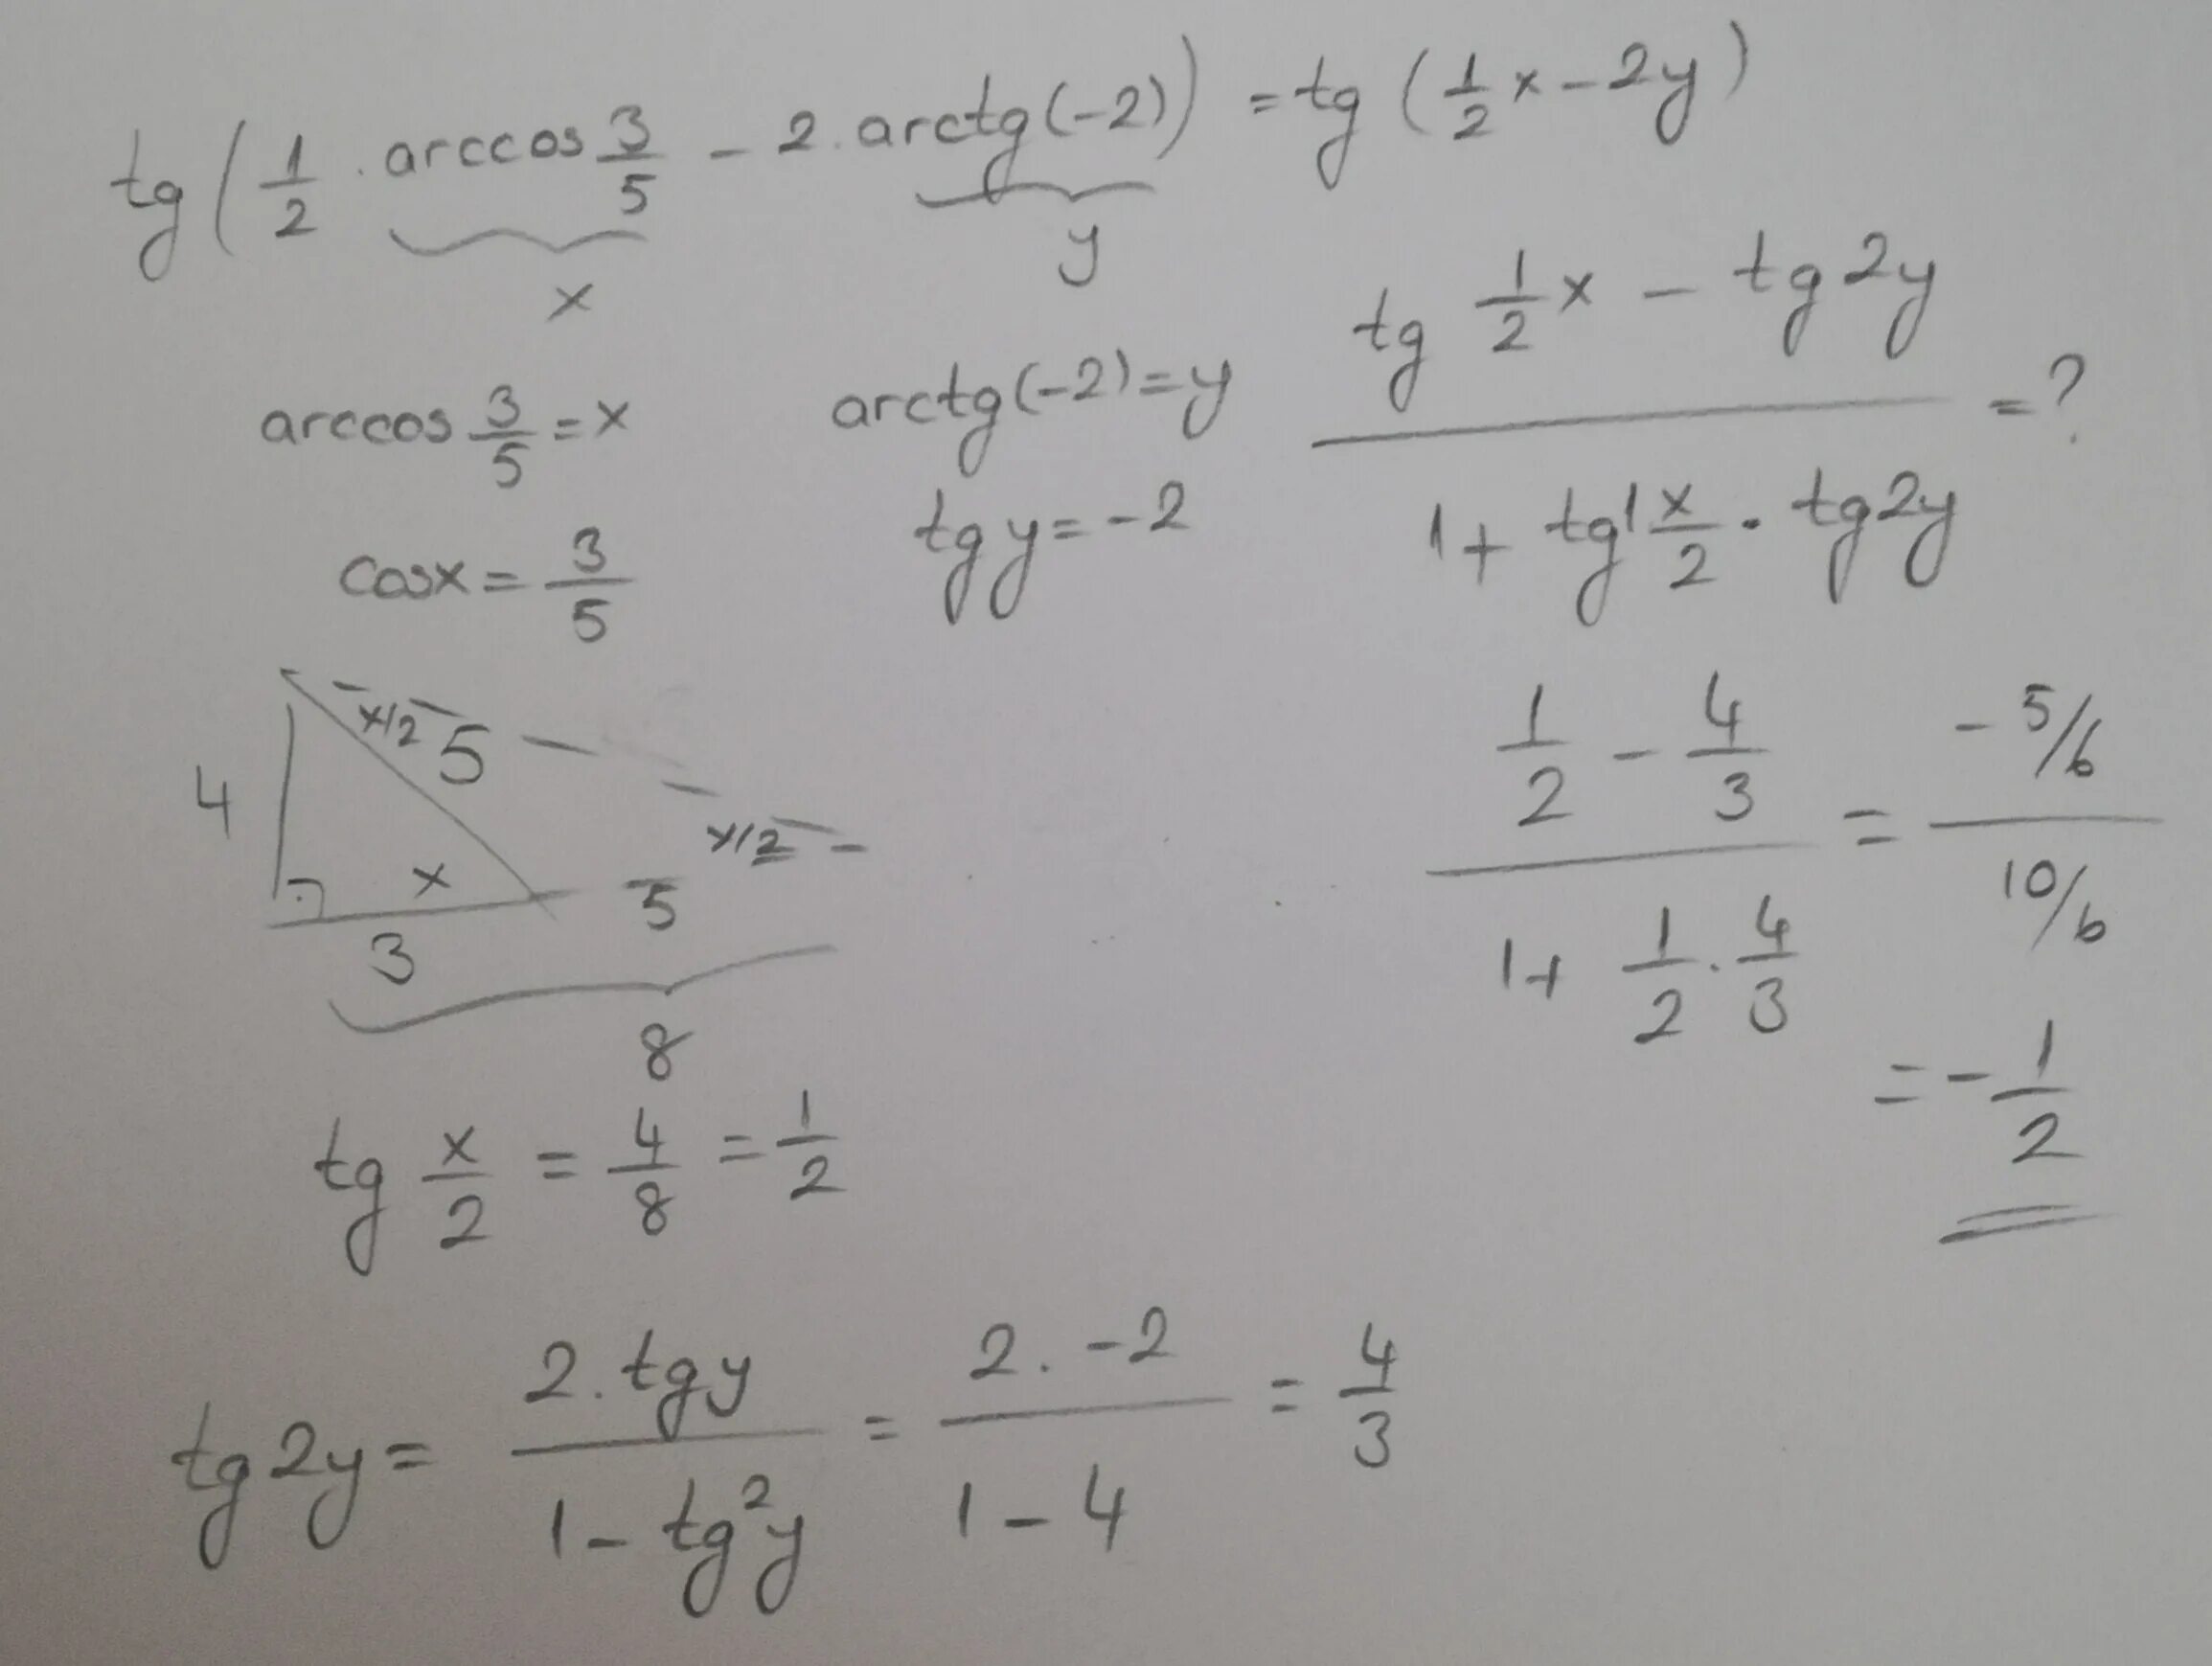 tg (1/2 . arccos 3/5 - 2 . arctg(-2)) = tg (1/2 x - 2y)
x
y
arccos 3/5 = x
cosx = 3/5
arctg(-2) = y
tg y = -2
(tg 1/2 x - tg 2y) / (1 + tg 1 x/2 . tg 2y) = ?
x/2
5
4
x
x/2
3
5
8
tg x/2 = 4/8 = 1/2
(1/2 - 4/3) / (1 + 1/2 . 4/3) = (-5/6) / (10/6)
= - 1/2
tg 2y = (2 . tg y) / (1 - tg²y) = (2 . -2) / (1 - 4) = 4/3